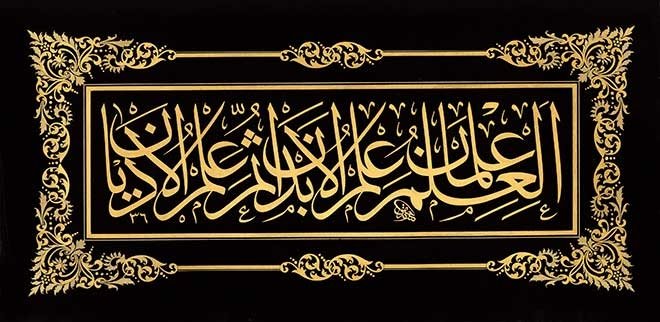 العلم علمان علم الابدان ثم علم الاديان